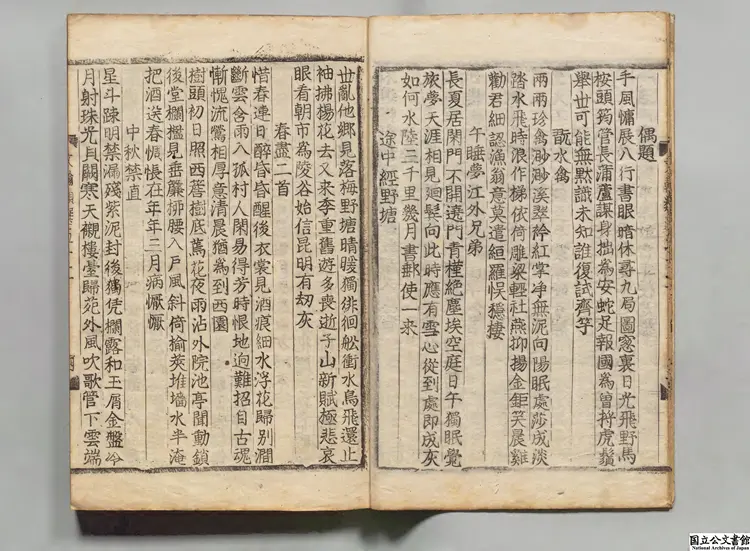 偶題
手風慵展八行書眼暗休尋九局圖窓裏日光飛野馬
桉頭筠管長蒲蘆謀身拙為安蛇足報國為曾捋虎鬚
舉世可能無默識未知誰復試齊竽
翫水禽
兩兩珍禽渺渺溪翠衿紅掌淨無泥向陽眠處莎成毯
踏水飛時浪作梯依倚雕梁輕社燕抑揚金鉅笑晨雞
勸君細認漁翁意莫遣絙羅悞穩棲
午睡夢江外兄弟
長夏居閑門不開遶門青槿絶塵埃空庭日午獨眠覺
旅夢天涯相見迴鬢向此時應有雪心從到處即成灰
如何水陸三千里幾月書郵使一來
途中經野塘
世亂他鄉見落梅野塘晴暖獨徘徊舩衝水鳥飛還止
袖拂楊花去又來季重舊遊多喪逝子山新賦極悲哀
眼看朝市為陵谷始信昆明有刼灰
春盡二首
惜春連日醉昏昏醒後衣裳見酒痕細水浮花歸別澗
斷雲含雨入孤村人閑易得芳時恨地迥難招自古魂
慚愧流鶯相厚意清晨猶為到西園
樹頭初日照西簷樹底蔫花夜雨沾外院池亭聞動鎖
後堂欄檻見垂簾柳腰入戶風斜倚榆莢堆墻水半淹
把酒送春惆悵在年年三月病懨懨
中秋禁直
星斗疎明禁漏殘紫泥封後獨凭欄露和玉屑金盤冷
月射珠光貝闕寒天襯樓臺歸苑外風吹歌管下雲端
国立公文書館
National Archives of Japan